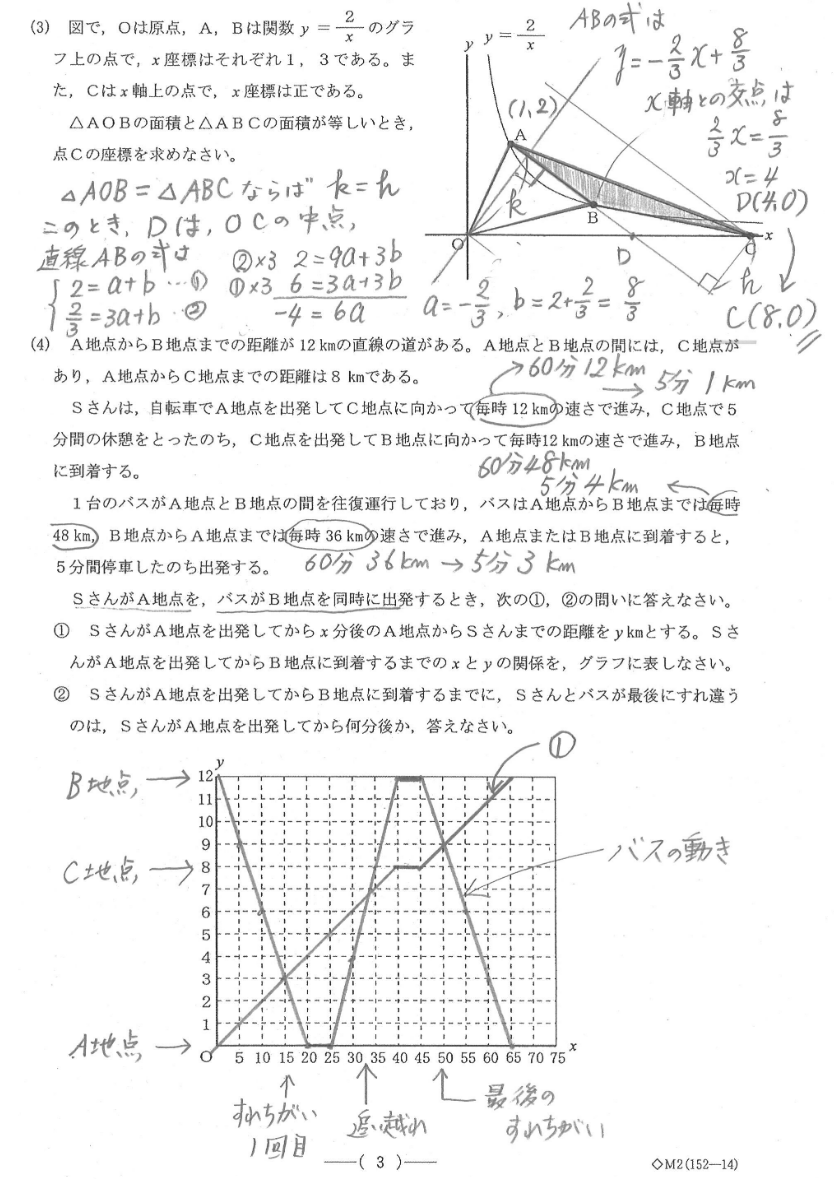 (3) 図で，Oは原点，A，Bは関数 y = 2/x のグラ
フ上の点で，x座標はそれぞれ1，3である。ま
た，Cはx軸上の点で，x座標は正である。
△AOBの面積と△ABCの面積が等しいとき，
点Cの座標を求めなさい。
△AOB = △ABC ならば k = h
このとき，Dは，OCの中点，
直線ABの式は
2 = a + b … ①
2/3 = 3a + b ②
②×3 2 = 9a + 3b
①×3 6 = 3a + 3b
-4 = 6a
a = -2/3, b = 2 + 2/3 = 8/3
y
y = 2/x
ABの式は
y = -2/3 x + 8/3
x軸との交点は
2/3 x = 8/3
x = 4
D(4,0)
C(8,0)
(1,2)
A
k
B
O
D
C
x
h
(4) A地点からB地点までの距離が12kmの直線の道がある。A地点とB地点の間には，C地点が
あり，A地点からC地点までの距離は8kmである。
→60分12km → 5分1km
Sさんは，自転車でA地点を出発してC地点に向かって毎時12kmの速さで進み，C地点で5
分間の休憩をとったのち，C地点を出発してB地点に向かって毎時12kmの速さで進み，B地点
に到着する。
60分48km
5分4km ←
1台のバスがA地点とB地点の間を往復運行しており，バスはA地点からB地点までは毎時
48km，B地点からA地点までは毎時36kmの速さで進み，A地点またはB地点に到着すると，
5分間停車したのち出発する。
60分36km → 5分3km
Sさんが A地点を，バスがB地点を同時に出発するとき，次の①，②の問いに答えなさい。
① SさんがA地点を出発してからx分後のA地点からSさんまでの距離をykmとする。Sさ
んがA地点を出発してからB地点に到着するまでのxとyの関係を，グラフに表しなさい。
② SさんがA地点を出発してからB地点に到着するまでに，Sさんとバスが最後にすれ違う
のは，SさんがA地点を出発してから何分後か，答えなさい。
y
①
B地点 →
12
11
10
9
C地点 →
8
7
6
5
4
3
2
1
バスの動き
A地点 →
O 5 10 15 20 25 30 35 40 45 50 55 60 65 70 75 x
すれちがい
1回目
追い越れ
最後の
すれちがい
―( 3 )―
◇M2(152―14)